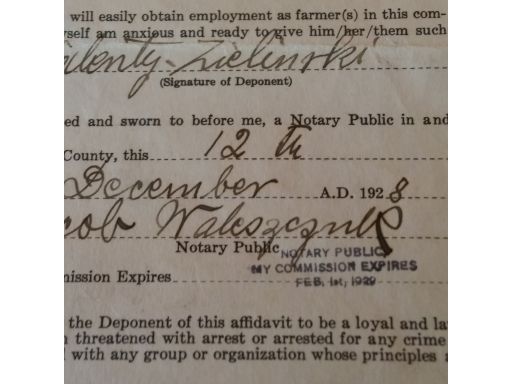 will easily obtain employment as farmer(s) in this com-
yself am anxious and ready to give him/her/them such
alenty Zielinski
(Signature of Deponent)
ed and sworn to before me, a Notary Public in and
County, this 12 th
December A.D. 1928
cob
Notary Public
NOTARY PUBLIC
MY COMMISSION EXPIRES
FEB. 1st, 1929
ission Expires
the Deponent of this affidavit to be a loyal and la
threatened with arrest or arrested for any crime
with any group or organization whose principles a